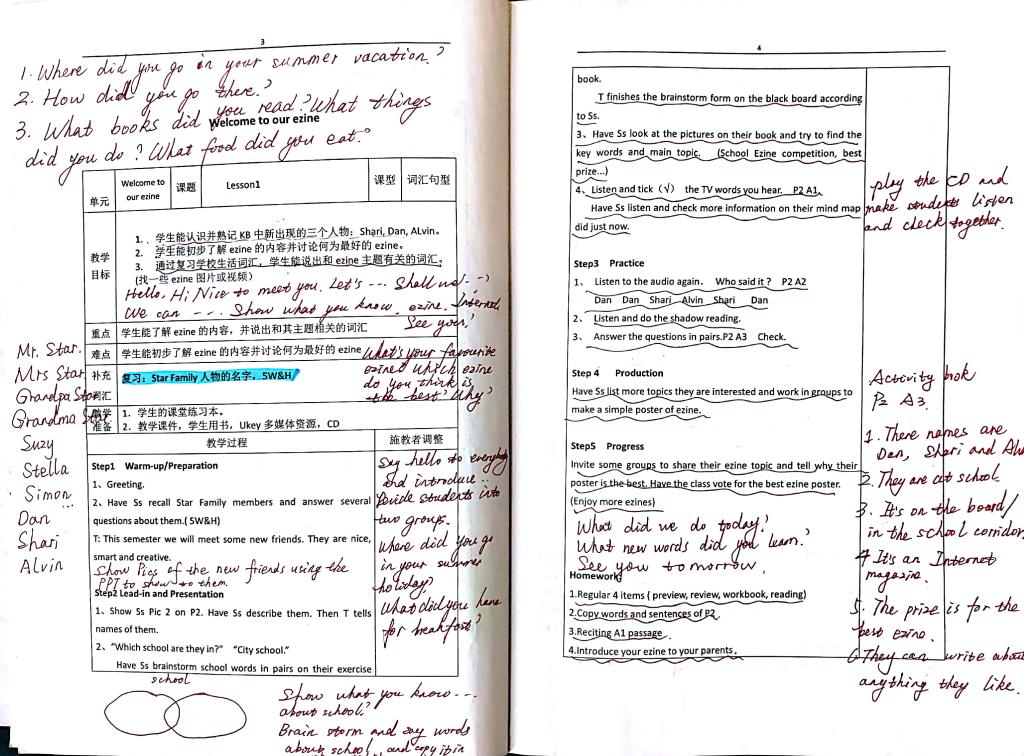 3
1. Where did you go in your summer vacation?
2. How did you go there?
3. What books did you read? What things
did you do? What food did you eat?
Welcome to our ezine
单元
Welcome to
our ezine
课题
Lesson1
课型
词汇句型
教学
目标
1. 、学生能认识并熟记 KB 中新出现的三个人物：Shari, Dan, ALvin。
2. 学生能初步了解 ezine 的内容并讨论何为最好的 ezine。
3. 通过复习学校生活词汇，学生能说出和 ezine 主题有关的词汇。
(找一些 ezine 图片或视频)
Hello, Hi, Nice to meet you. Let's --- Shall we ---?
We can --- . Show what you know. ezine. Internet
See you!
重点
学生能了解 ezine 的内容，并说出和其主题相关的词汇
难点
学生能初步了解 ezine 的内容并讨论何为最好的 ezine
What's your favourite
ezine? Which ezine
do you think is
the best? Why?
补充
词汇
复习：Star Family 人物的名字，5W&H
教学
准备
1. 学生的课堂练习本。
2. 教学课件，学生用书，Ukey 多媒体资源，CD
Mr. Star.
Mrs Star
Grandpa Star
Grandma Star
Suzy
Stella
Simon
...
Dan
Shari
Alvin
教学过程
施教者调整
Step1 Warm-up/Preparation
1、Greeting.
2、Have Ss recall Star Family members and answer several
questions about them.( 5W&H)
T: This semester we will meet some new friends. They are nice,
smart and creative.
Show Pics of the new friends using the
PPT to show to them.
Step2 Lead-in and Presentation
1、Show Ss Pic 2 on P2. Have Ss describe them. Then T tells
names of them.
2、"Which school are they in?" "City school."
Have Ss brainstorm school words in pairs on their exercise
Say hello to everybody
and introduce ..
Devide students into
two groups.
Where did you go
in your summer
holiday?
What did you have
for breakfast?
school
Show what you know ---
about school?
Brain storm and say words
about school, and copy it in
4
book.
T finishes the brainstorm form on the black board according
to Ss.
3、Have Ss look at the pictures on their book and try to find the
key words and main topic. (School Ezine competition, best
prize...)
4、Listen and tick (√) the TV words you hear. P2 A1.
Have Ss listen and check more information on their mind map
did just now.
play the CD and
make students listen
and check together.
Step3 Practice
1、 Listen to the audio again. Who said it? P2 A2
Dan Dan Shari Alvin Shari Dan
2、 Listen and do the shadow reading.
3、 Answer the questions in pairs.P2 A3 Check.
Step 4 Production
Have Ss list more topics they are interested and work in groups to
make a simple poster of ezine.
Step5 Progress
Invite some groups to share their ezine topic and tell why their
poster is the best. Have the class vote for the best ezine poster.
(Enjoy more ezines)
What did we do today?
What new words did you learn?
See you tomorrow.
Homework
1.Regular 4 items ( preview, review, workbook, reading)
2.Copy words and sentences of P2
3.Reciting A1 passage.
4.Introduce your ezine to your parents.
Activity book
P2 A3.
1. There names are
Dan, Shari and Alv
2. They are at school
3. It's on the board/
in the school corridor
4 It's an Internet
magazine.
5. The prize is for the
best ezine.
6. They can write about
anything they like.